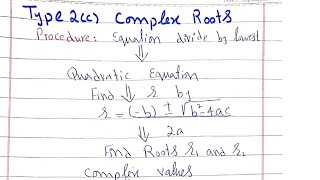 Type 2(c) Complex Roots
Procedure: Equation divide by lowest
⇓
Quadratic Equation
Find ⇓ r by
r = (-b) ± √b²-4ac
⇓ 2a
Find Roots r₁ and r₂
Complex values